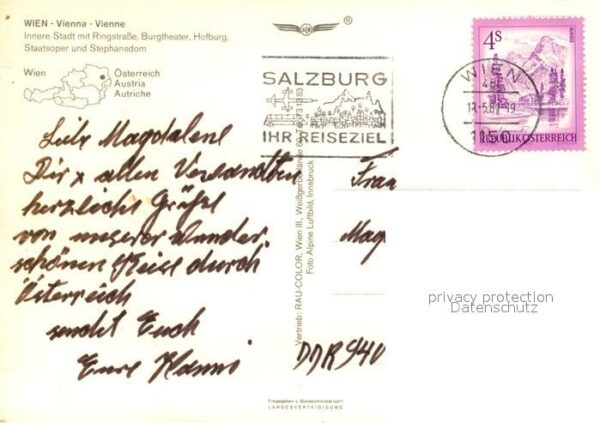 WIEN - Vienna - Vienne
Innere Stadt mit Ringstraße, Burgtheater, Hofburg,
Staatsoper und Stephansdom
Wien
Österreich
Austria
Autriche
SALZBURG
IHR REISEZIEL
4s
WIEN
1150
REPUBLIK ÖSTERREICH
Magdalene
Dir & allen Verwandten
herzliche Grüße
von unserer wunder
schönen Reise durch
Österreich
sendet Euch
Eure Hanni
Frau
Mag
DDR 940
Vertrieb: RAU-COLOR, Wien III, Weißgerberlände
Foto Alpine Luftbild, Innsbruck
privacy protection
Datenschutz
Freigegeben v. Bundesministerium f.
LANDESVERTEIDIGUNG